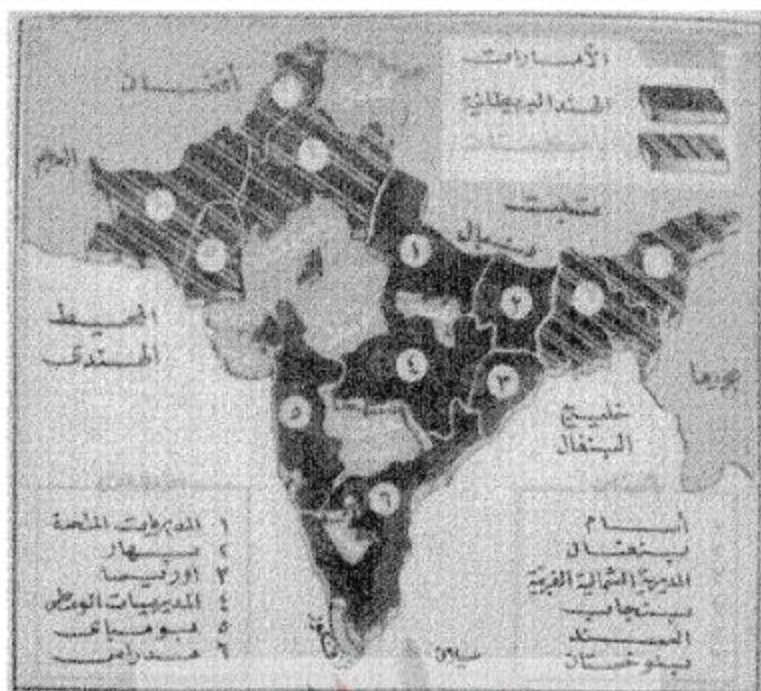 الأمارات
الهند البريطانية
أفغان
تيبت
نيبال
المحيط
الهندى
بورما
خليج
البنغال
١
٢
٣
٤
٥
٦
١ المديريات المتحدة
٢ بيهار
٣ اوريسا
٤ المديريات الوسطى
٥ بومباى
٦ مدراس
أسام
بنغال
المديرية الشمالية الغربية
بنجاب
السند
بلوخستان